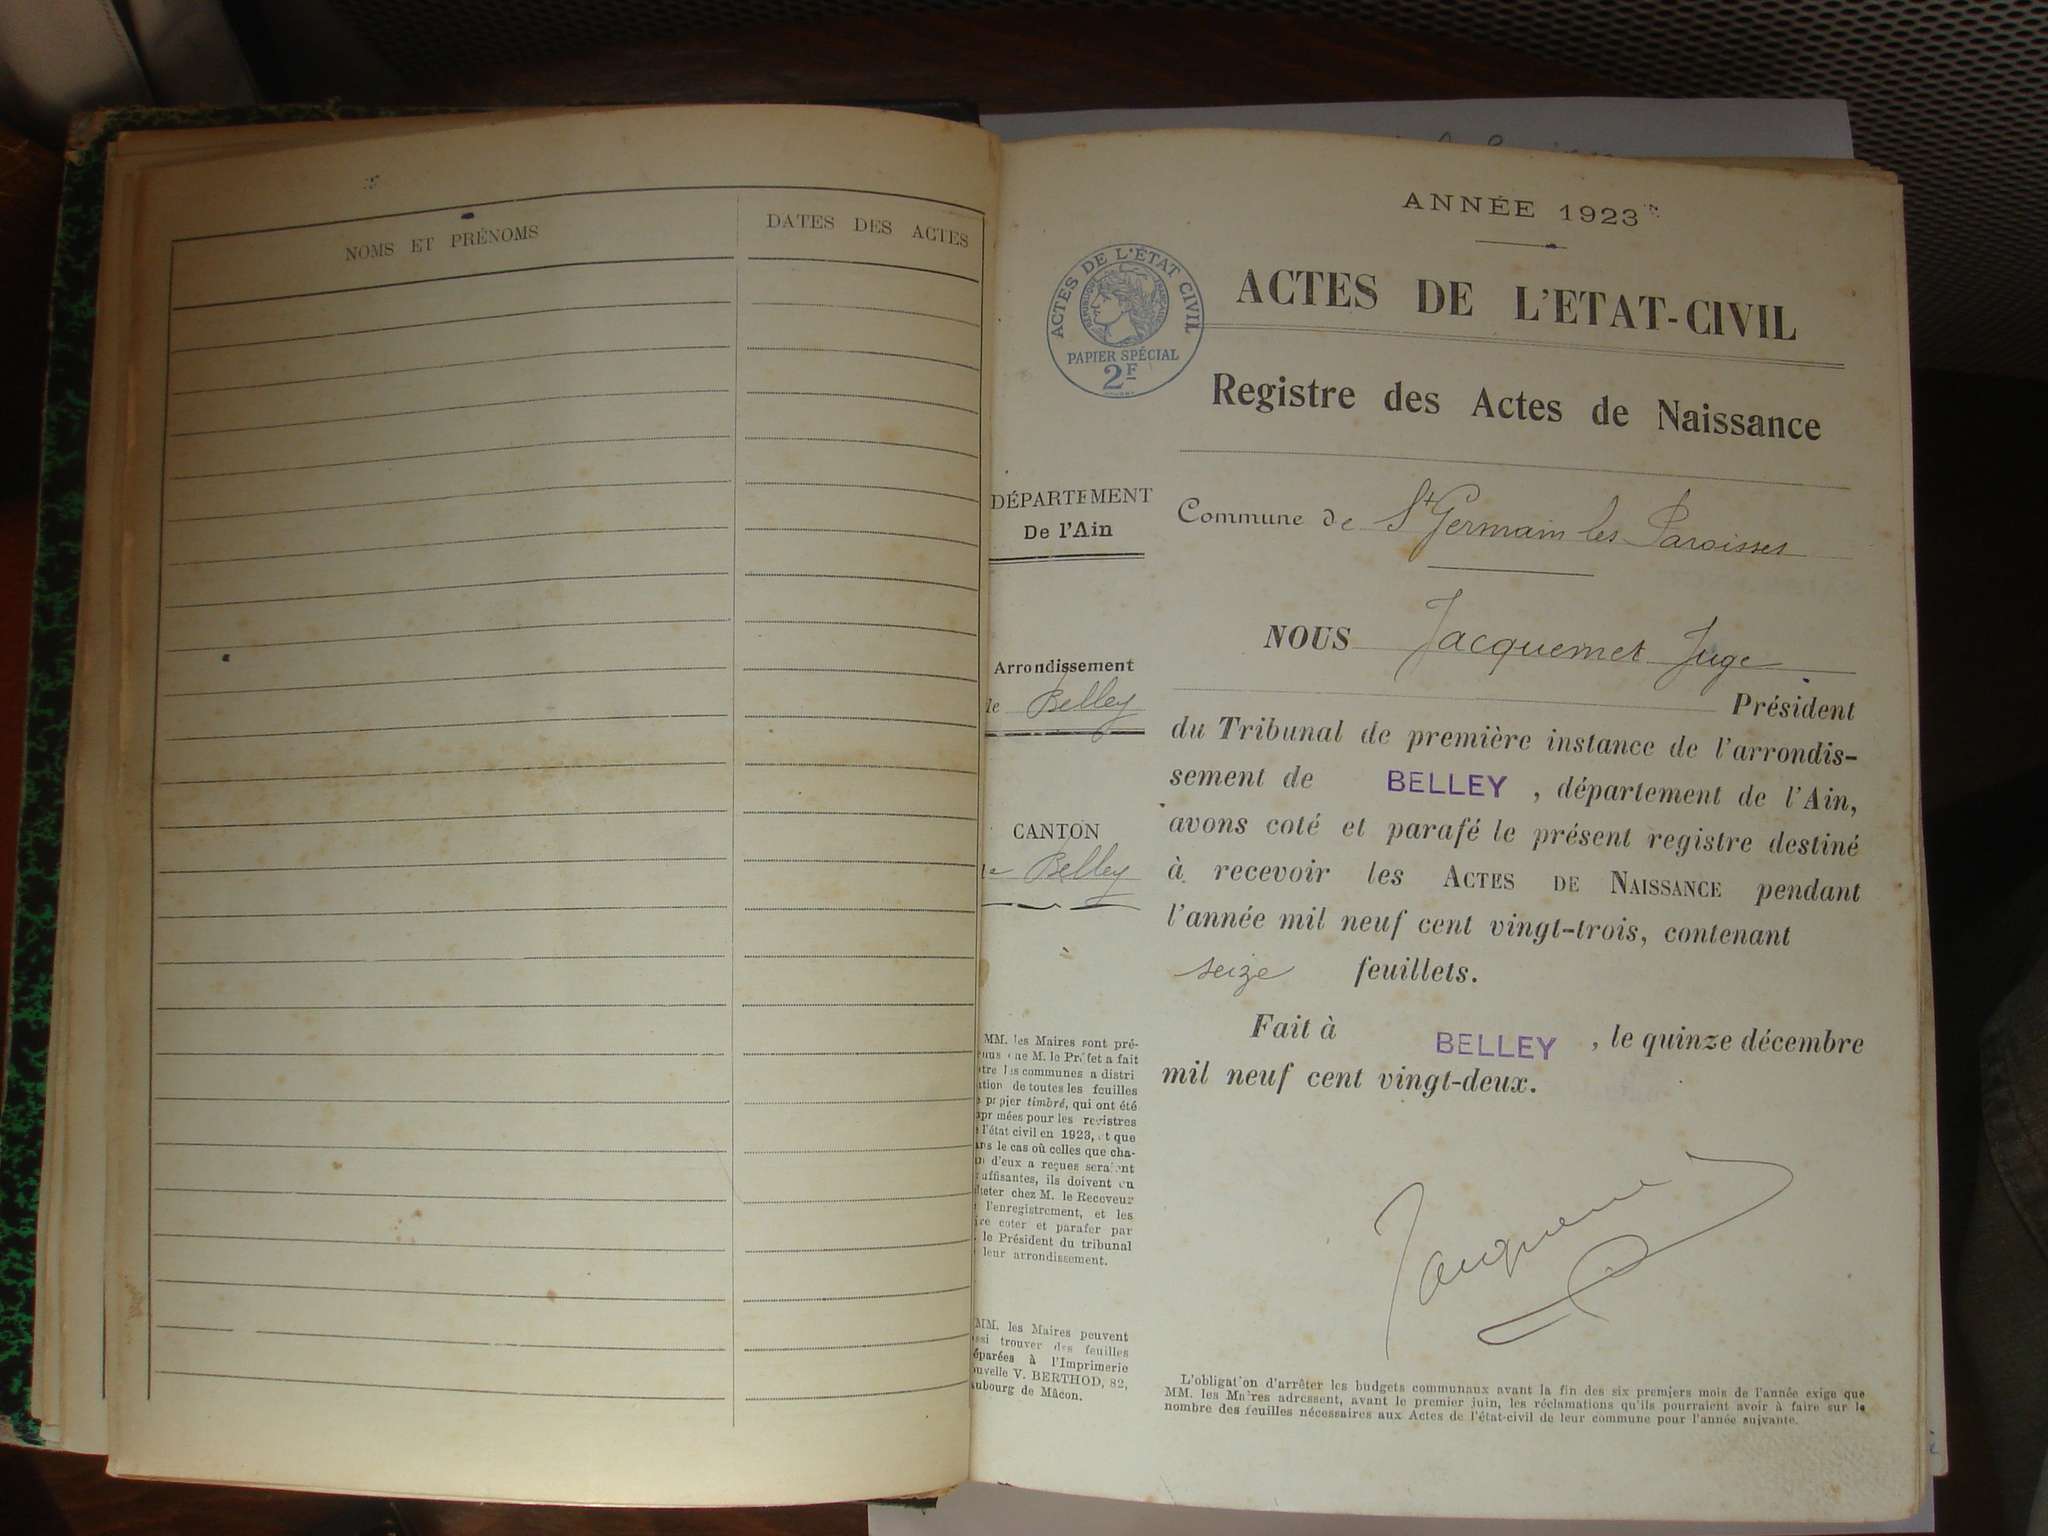 NOMS ET PRÉNOMS
DATES DES ACTES
ANNÉE 1923
ACTES DE L'ÉTAT CIVIL
RÉPUBLIQUE FRANÇAISE
PAPIER SPÉCIAL
2F
ACTES DE L'ETAT-CIVIL
Registre des Actes de Naissance
DÉPARTEMENT
De l'Ain
Arrondissement
de Belley
CANTON
de Belley
MM. les Maires sont pré-
que M. le Préfet a fait
les communes a distri
de toutes les feuilles
papier timbré, qui ont été
mées pour les registres
l'état civil en 1923, et que
le cas où celles que cha-
d'eux a reçues seraient
uffisantes, ils doivent en
chez M. le Receveur
l'enregistrement, et les
coter et parafer par
le Président du tribunal
leur arrondissement.
MM. les Maires peuvent
trouver des feuilles
éparées à l'Imprimerie
V. BERTHOD, 82,
ubourg de Mâcon.
Commune de St Germain les Paroisses
NOUS Jacquemet Juge
Président
du Tribunal de première instance de l'arrondis-
sement de BELLEY, département de l'Ain,
avons coté et parafé le présent registre destiné
à recevoir les ACTES DE NAISSANCE pendant
l'année mil neuf cent vingt-trois, contenant
seize feuillets.
Fait à BELLEY, le quinze décembre
mil neuf cent vingt-deux.
L'obligation d'arrêter les budgets communaux avant la fin des six premiers mois de l'année exige que
MM. les Maires adressent, avant le premier juin, les réclamations qu'ils pourraient avoir à faire sur le
nombre des feuilles nécessaires aux Actes de l'état-civil de leur commune pour l'année suivante.